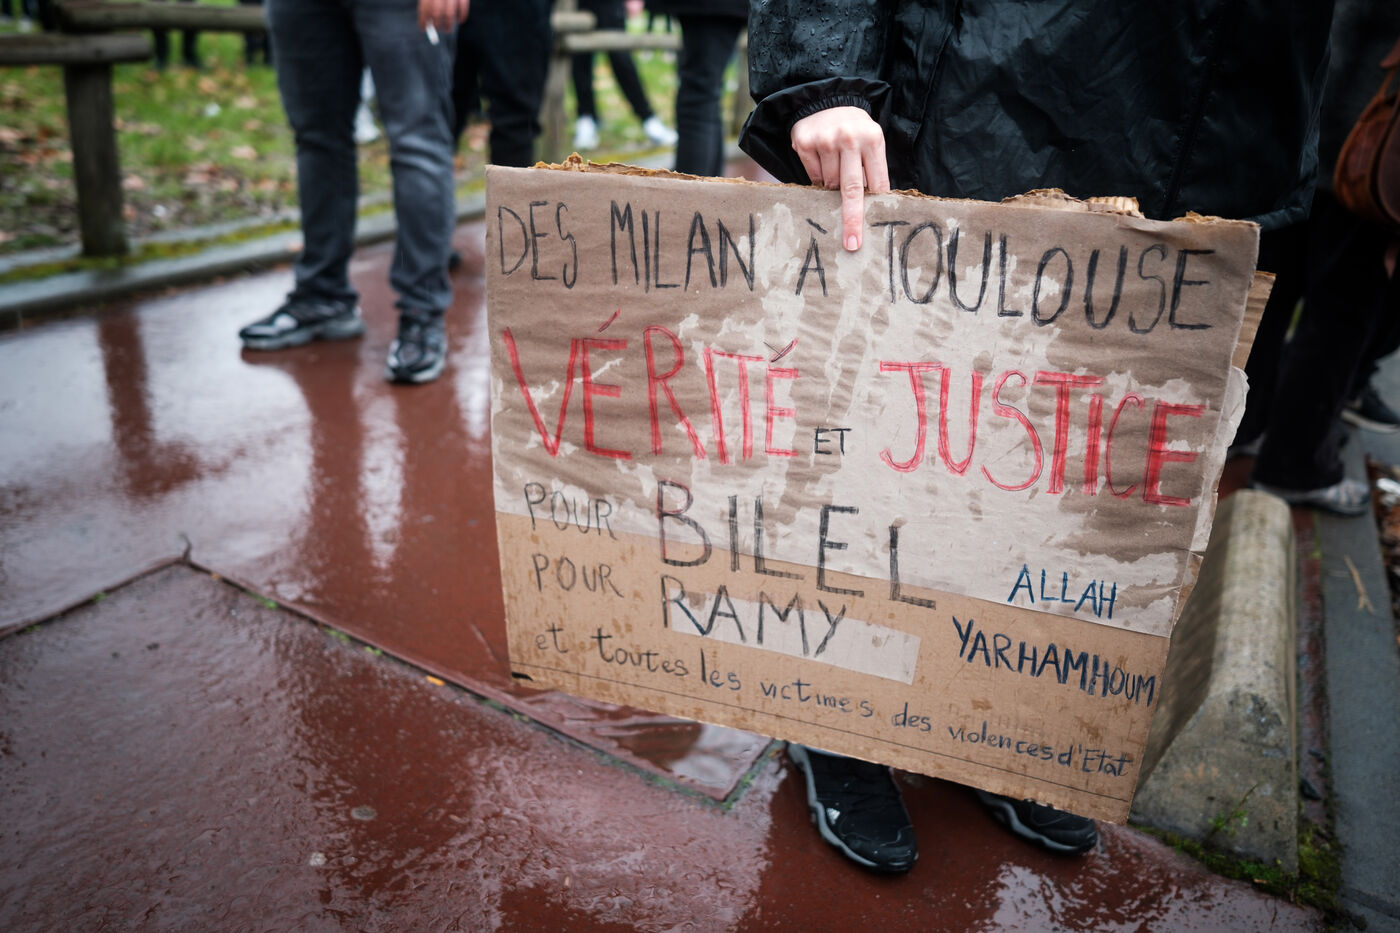 DES MILAN À TOULOUSE
VÉRITÉ ET JUSTICE
POUR BILEL
POUR RAMY
ALLAH
YARHAMHOUM
et toutes les victimes des violences d'Etat